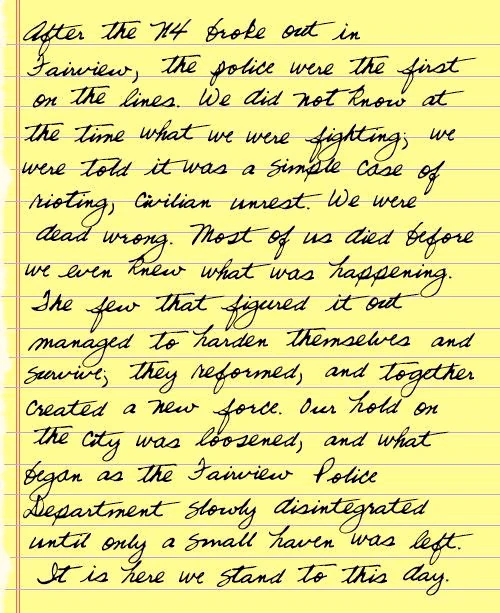 After the N4 broke out in
Fairview, the police were the first
on the lines. We did not know at
the time what we were fighting; we
were told it was a simple case of
rioting, civilian unrest. We were
dead wrong. Most of us died before
we even knew what was happening.
The few that figured it out
managed to harden themselves and
survive; they reformed, and together
created a new force. Our hold on
the city was loosened, and what
began as the Fairview Police
Department slowly disintegrated
until only a small haven was left.
It is here we stand to this day.